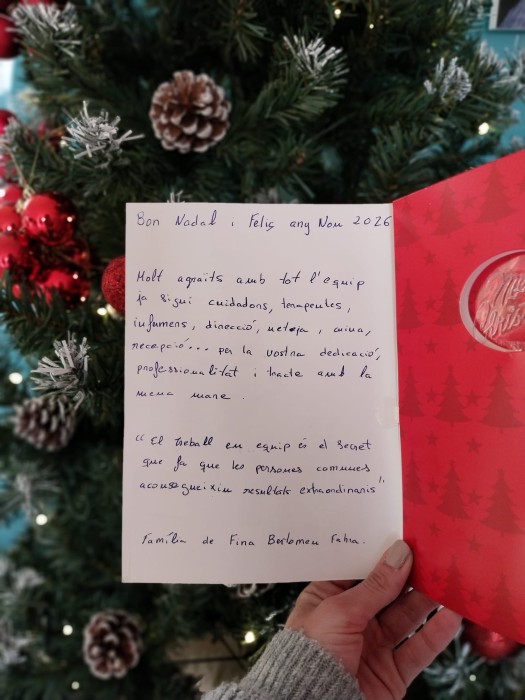 Bon Nadal i Feliç any Nou 2026
Molt agraïts amb tot l'equip
ja sigui cuidadors, terapeutes,
infermers, direcció, neteja, cuina,
recepció... per la vostra dedicació,
professionalitat i tracte amb la
meva mare.
"El treball en equip és el secret
que fa que les persones comunes
aconsegueixin resultats extraordinaris"
Família de Fina Bertomeu